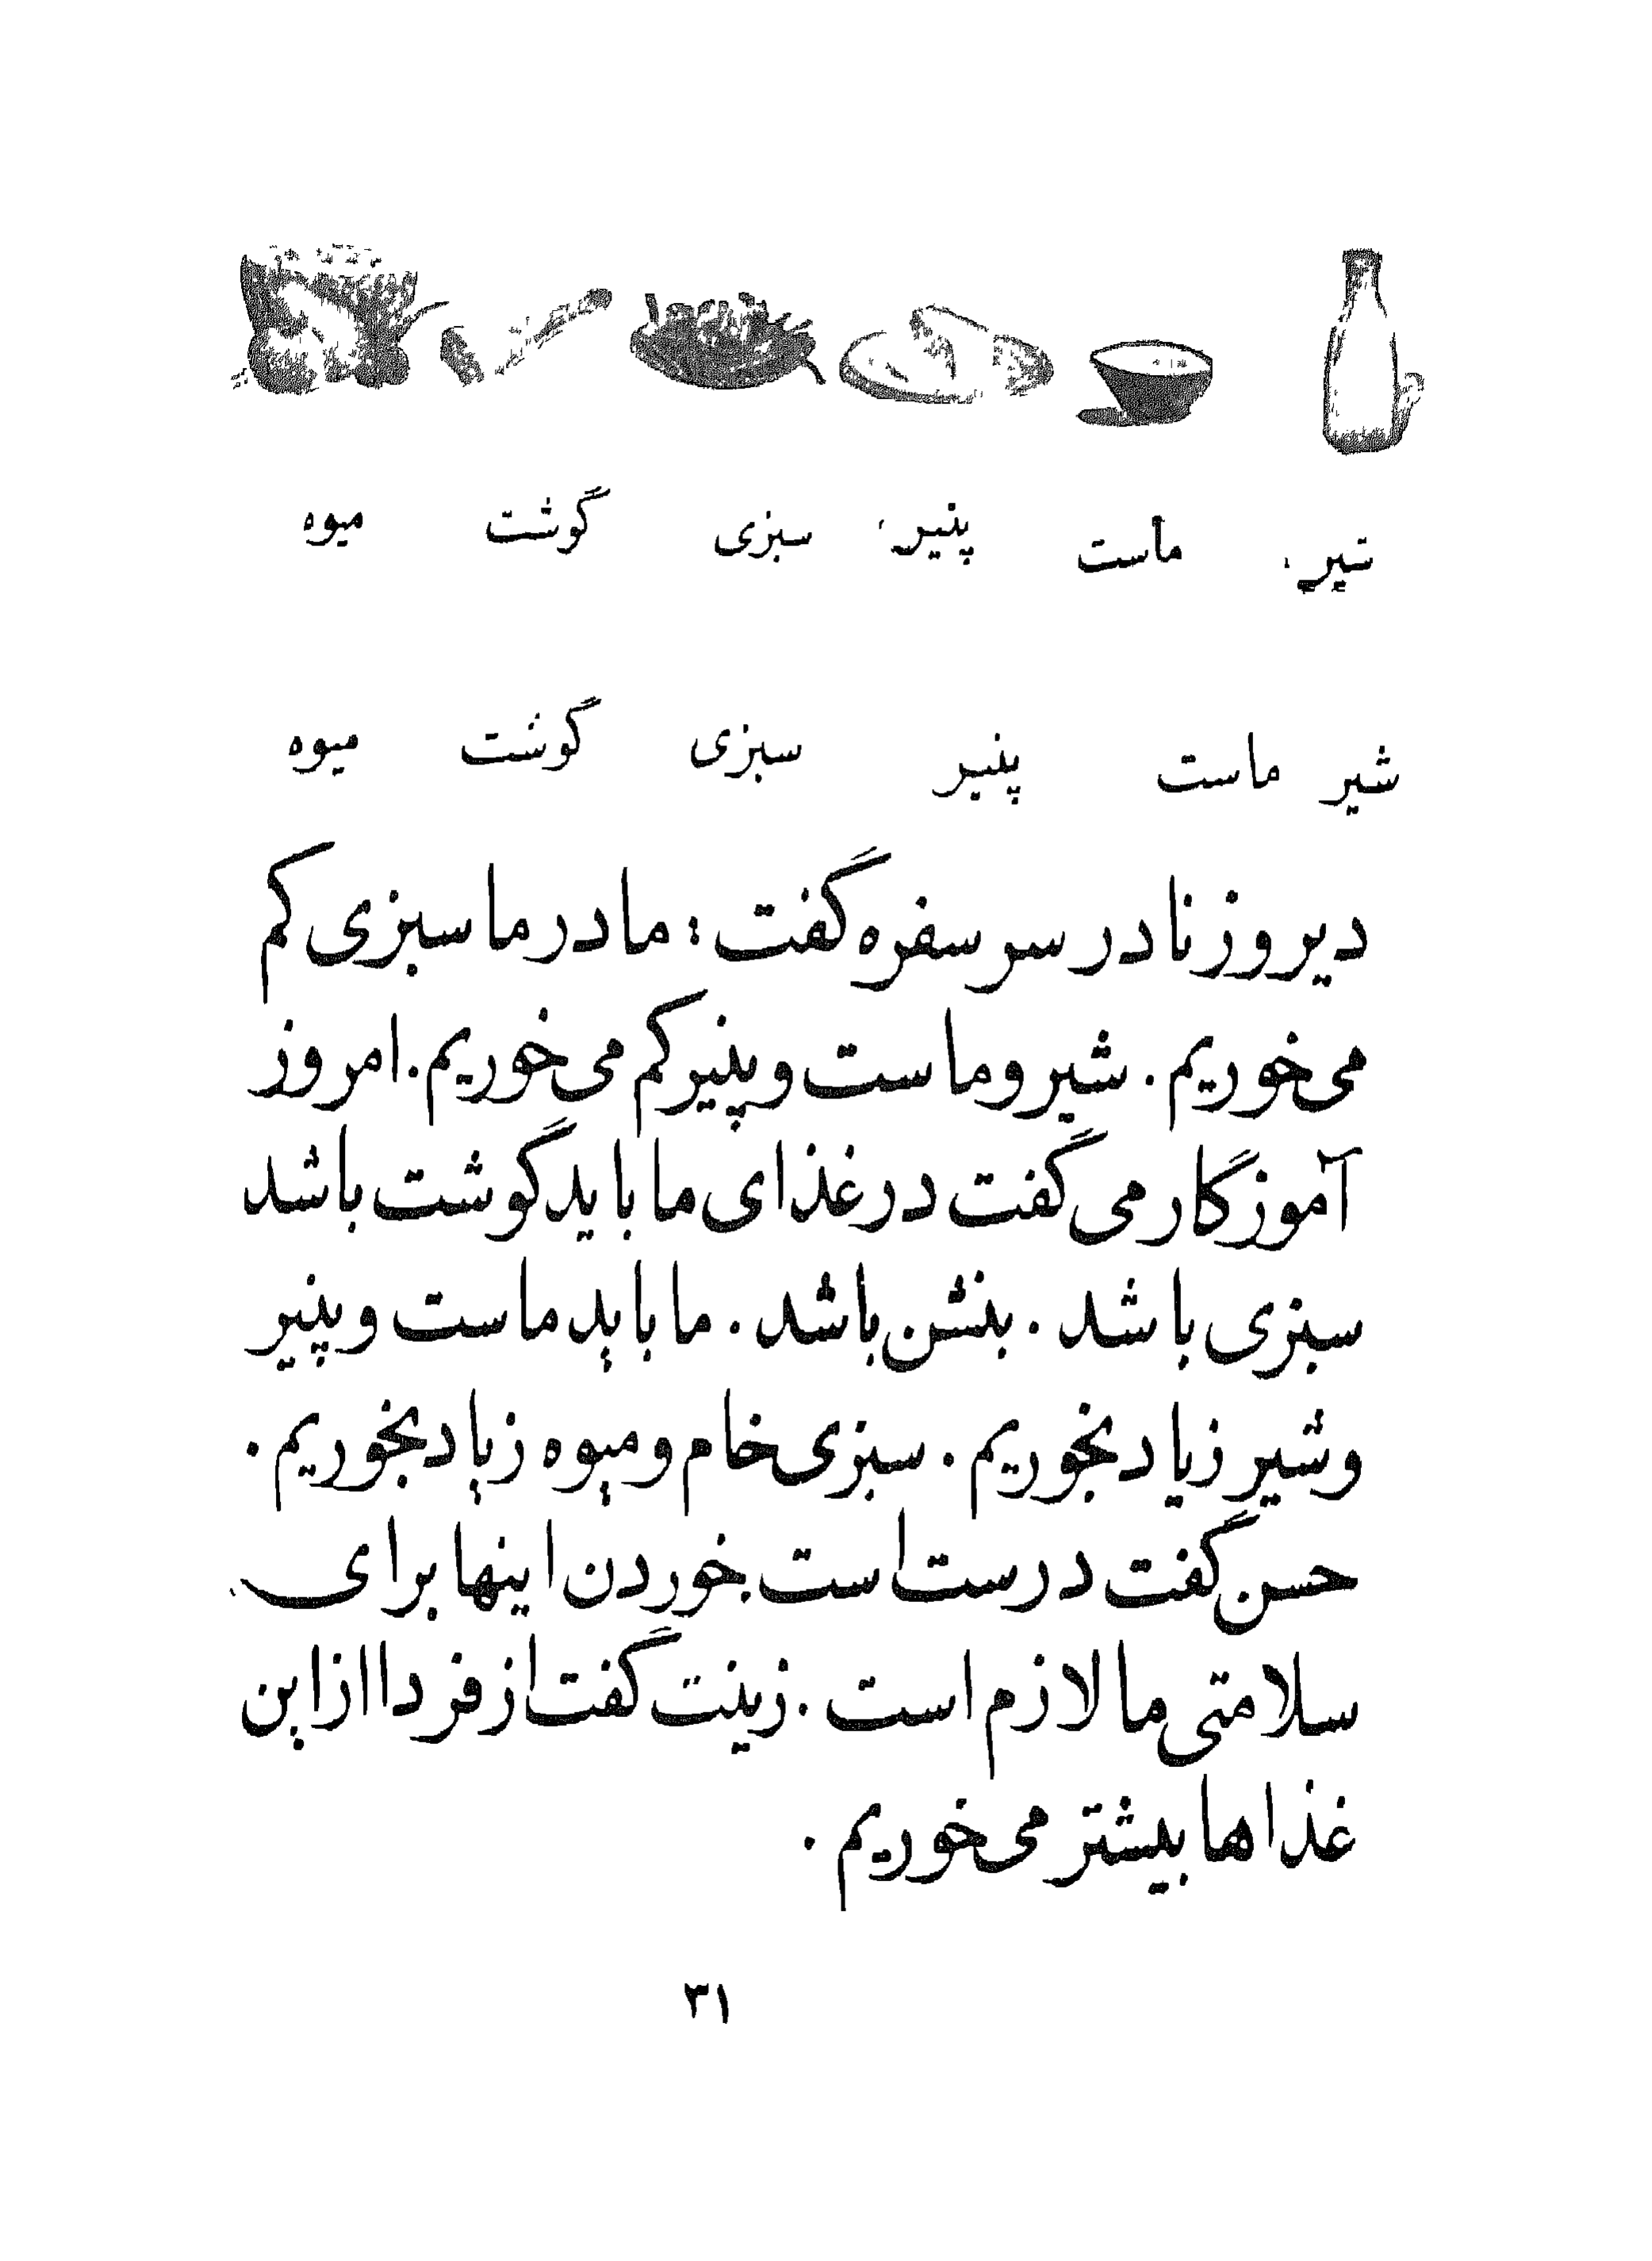 شیر ماست پنیر سبزی گوشت میوه
شیر ماست پنیر سبزی گوشت میوه
دیروز نادر سر سفره گفت : مادر ما سبزی کم
می‌خوریم . شیر و ماست و پنیر کم می‌خوریم. امروز
آموزگار می‌گفت در غذای ما باید گوشت باشد
سبزی باشد . بنشن باشد . ما باید ماست و پنیر
و شیر زیاد بخوریم . سبزی خام و میوه زیاد بخوریم .
حسن گفت درست است . خوردن اینها برای
سلامتی ما لازم است . زینت گفت از فردا از این
غذاها بیشتر می‌خوریم .
۳۱